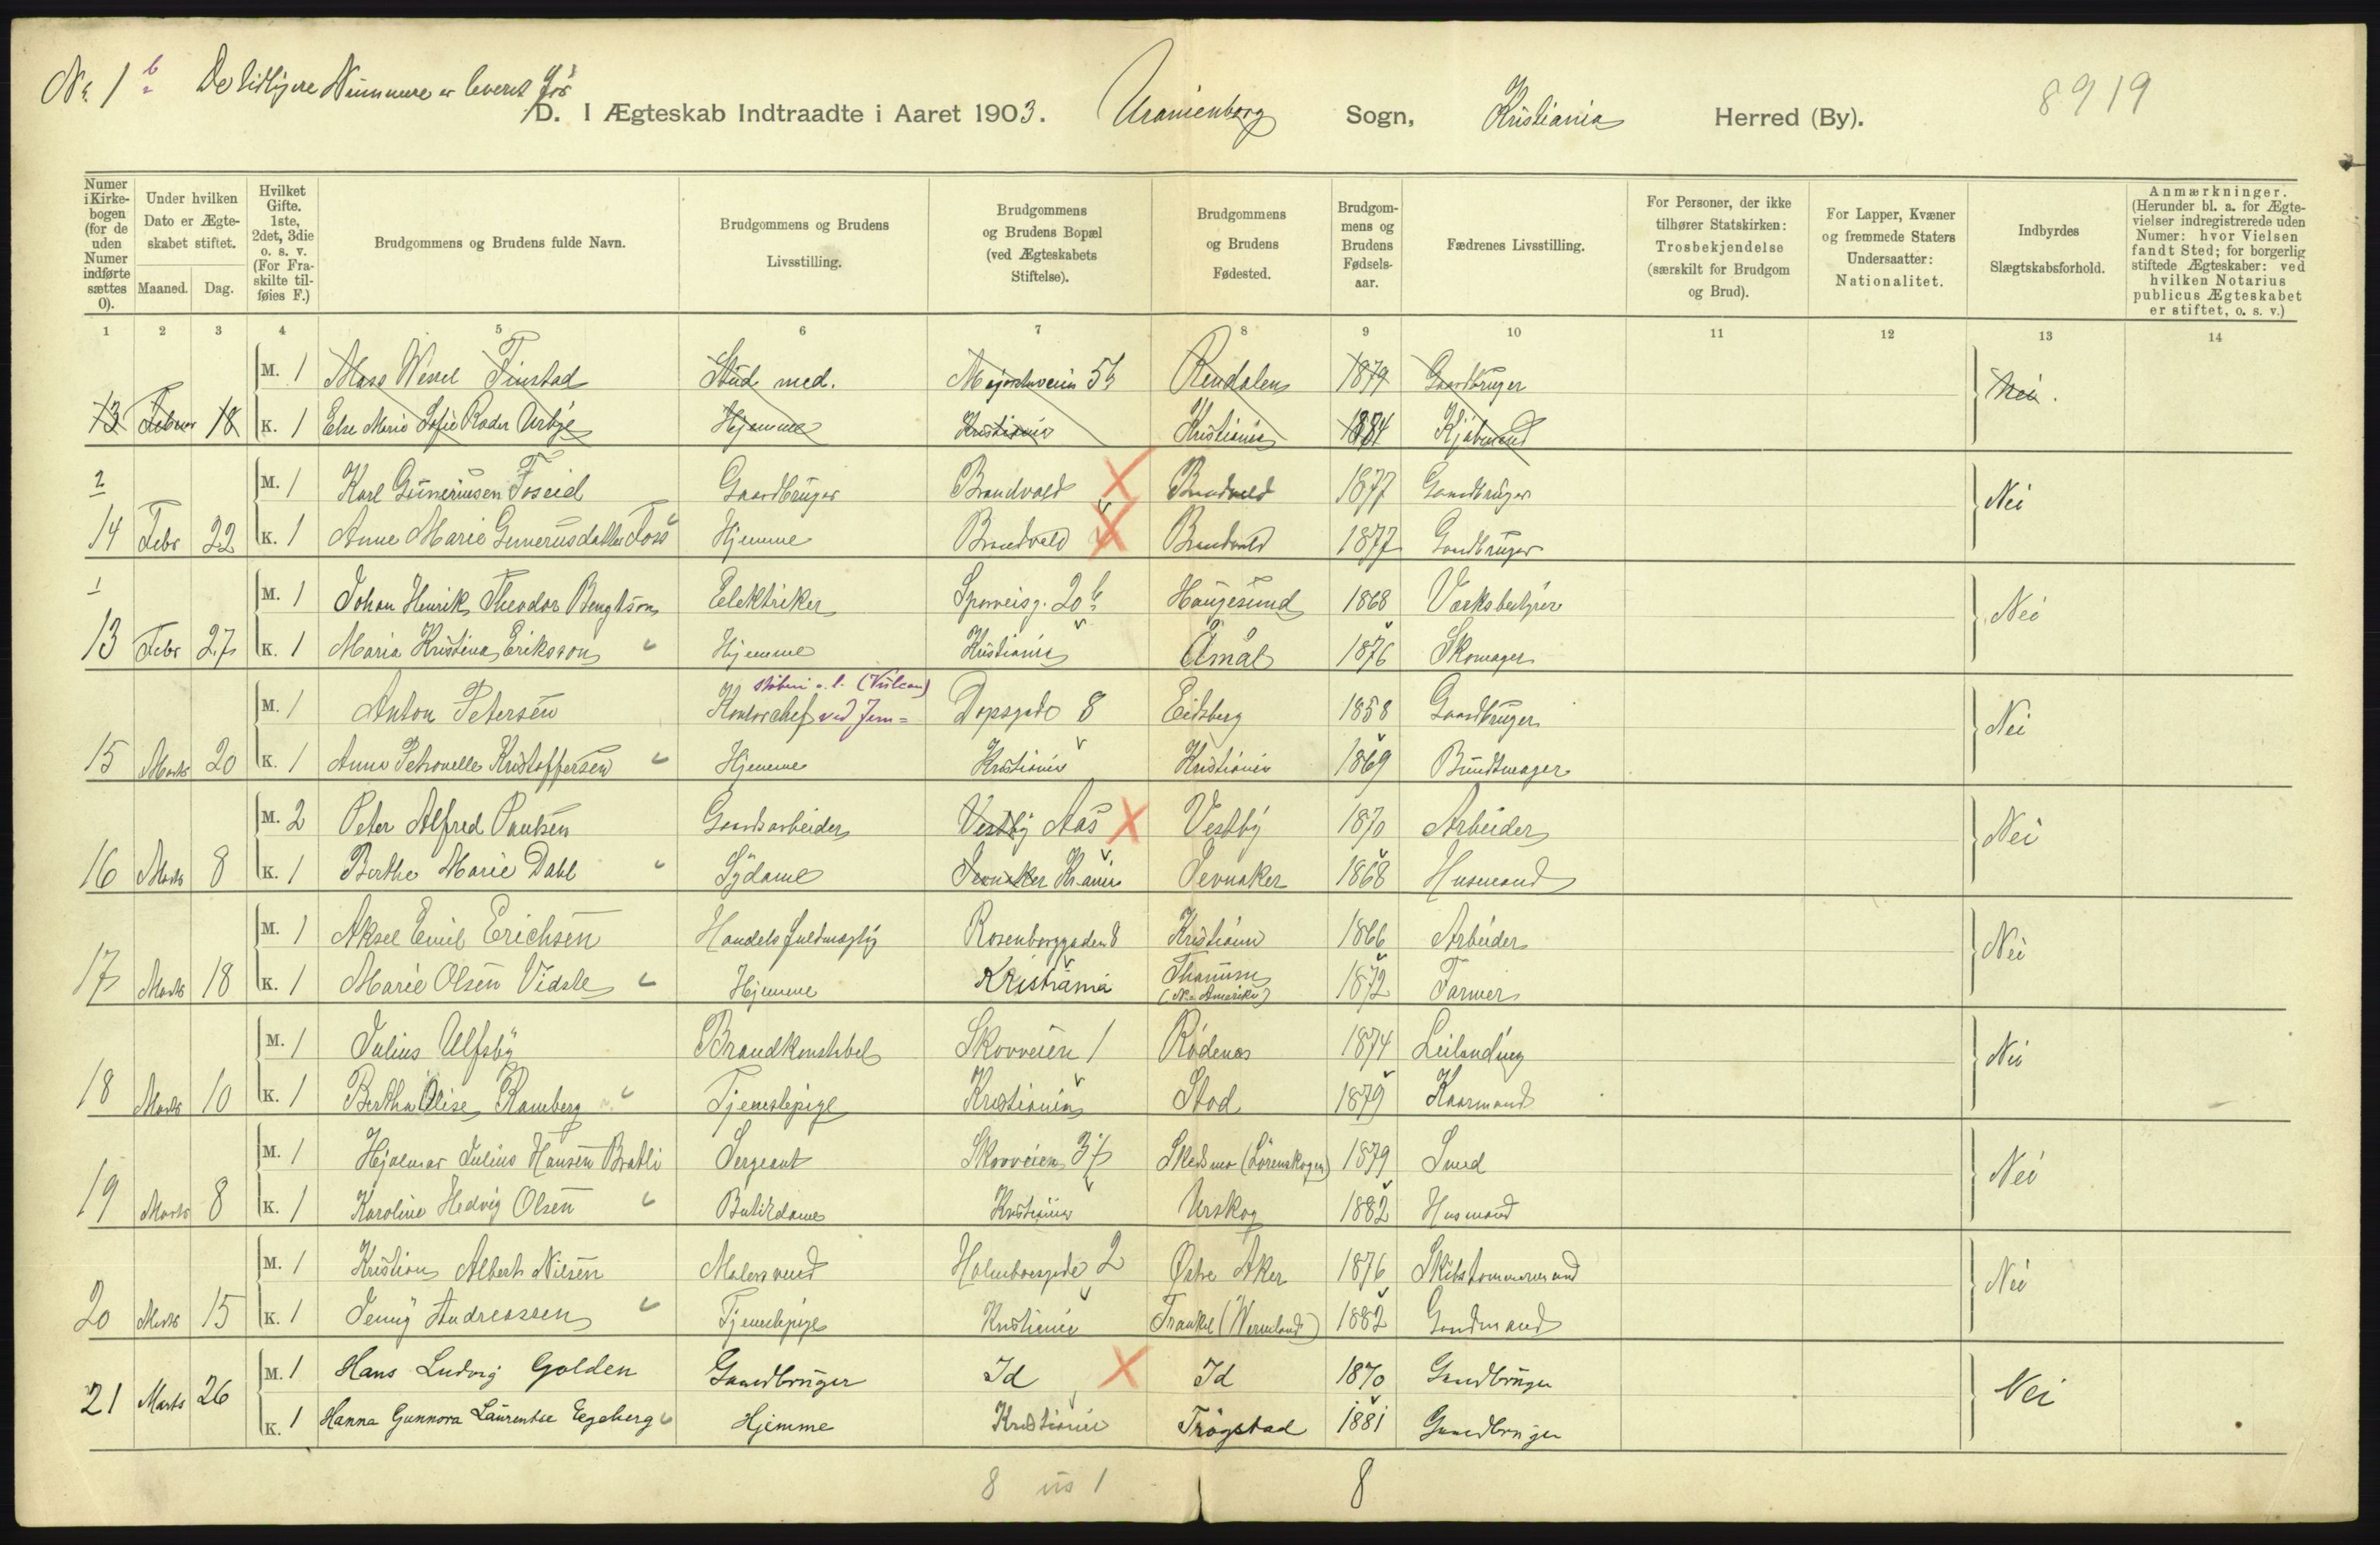 No. 1 b De tidligere Nummere er leveret før
D. I Ægteskab Indtraadte i Aaret 1903. Uranienborg Sogn, Kristiania Herred (By).
8919
Numer i Kirkebogen (for de uden Numer indførte sættes 0).
Under hvilken Dato er Ægteskabet stiftet.
Maaned. Dag.
Hvilket Gifte. 1ste, 2det, 3die o. s. v. (For Fraskilte tilføies F.)
Brudgommens og Brudens fulde Navn.
Brudgommens og Brudens Livsstilling.
Brudgommens og Brudens Bopæl (ved Ægteskabets Stiftelse).
Brudgommens og Brudens Fødested.
Brudgommens og Brudens Fødselsaar.
Fædrenes Livsstilling.
For Personer, der ikke tilhører Statskirken: Trosbekjendelse (særskilt for Brudgom og Brud).
For Lapper, Kvæner og fremmede Staters Undersaatter: Nationalitet.
Indbyrdes Slægtskabsforhold.
Anmærkninger. (Herunder bl. a. for Ægtevielser indregistrerede uden Numer: hvor Vielsen fandt Sted; for borgerlig stiftede Ægteskaber: ved hvilken Notarius publicus Ægteskabet er stiftet, o. s. v.)
1 2 3 4 5 6 7 8 9 10 11 12 13 14
M. 1 Wessel Finstad Stud med. Majorstuveien 5b Rendalen 1879 Gaardbruger
13 Februar 18 K. 1 Else Marie Sofie Roder Hjemme Kristiania Kristiania 1884 Kjøbmand Nei.
2 M. 1 Karl Guneriusen Foseid Gaardbruger Brandvold Brandvold 1877 Gaardbruger
14 Febr 22 K. 1 Anne Marie Gunerusdatter Foss Hjemme Brandvold Brandvold 1877 Gaardbruger Nei
1 M. 1 Johan Henrik Theodor Bengtson Elektriker Sporveisg. 20b Haugesund 1868 Værksbestyrer
13 Febr 27 K. 1 Maria Kristina Eriksson Hjemme Kristiania Åmål 1876 Skomager Nei
støberi o. l. (Vulcan)
M. 1 Anton Petersen Kontorchef ved Jern= Dopsgade 8 Eidsberg 1858 Gaardbruger
15 Marts 20 K. 1 Anna Petronelle Kristoffersen Hjemme Kristiania Kristiania 1869 Bundtmager Nei
M. 2 Peter Alfred Paulsen Gaardsarbeider Vestby Aas Vestby 1870 Arbeider
16 Marts 8 K. 1 Berthe Marie Dahl Sydame Jevnaker Kr.ania Jevnaker 1868 Husmand Nei
M. 1 Aksel Emil Erichsen Handelsfuldmægtig Rosenborggaden 8 Kristiania 1866 Arbeider
17 Marts 18 K. 1 Marie Olsen Vidste Hjemme Kristiania (N. Amerika) 1872 Farmer Nei
M. 1 Julius Ulfsby Brandkonstabel Skovveien 1 Rødenes 1874 Leilænding
18 Marts 10 K. 1 Bertha Olise Ramberg Tjenestepige Kristiania Stod 1879 Kaarmand Nei
M. 1 Hjalmar Julius Hansen Bratli Sergeant Skovveien 37 Skedsmo (Lørenskogen) 1879 Smed
19 Marts 8 K. 1 Karoline Hedvig Olsen Butikdame Kristiania Urskog 1882 Husmand Nei
M. 1 Kristian Albert Nilsen Malersvend Holmboesgade 2 Østre Aker 1876 Skibstømmermand
20 Marts 15 K. 1 Jenny Andreassen Tjenestepige Kristiania (Wermland) 1882 Gaardmand Nei
M. 1 Hans Ludvig Golden Gaardbruger Id Id 1870 Gaardbruger
21 Marts 26 K. 1 Hanna Gunnora Laurentse Egeberg Hjemme Kristiania Trøgstad 1881 Gaardbruger Nei
8 1 8